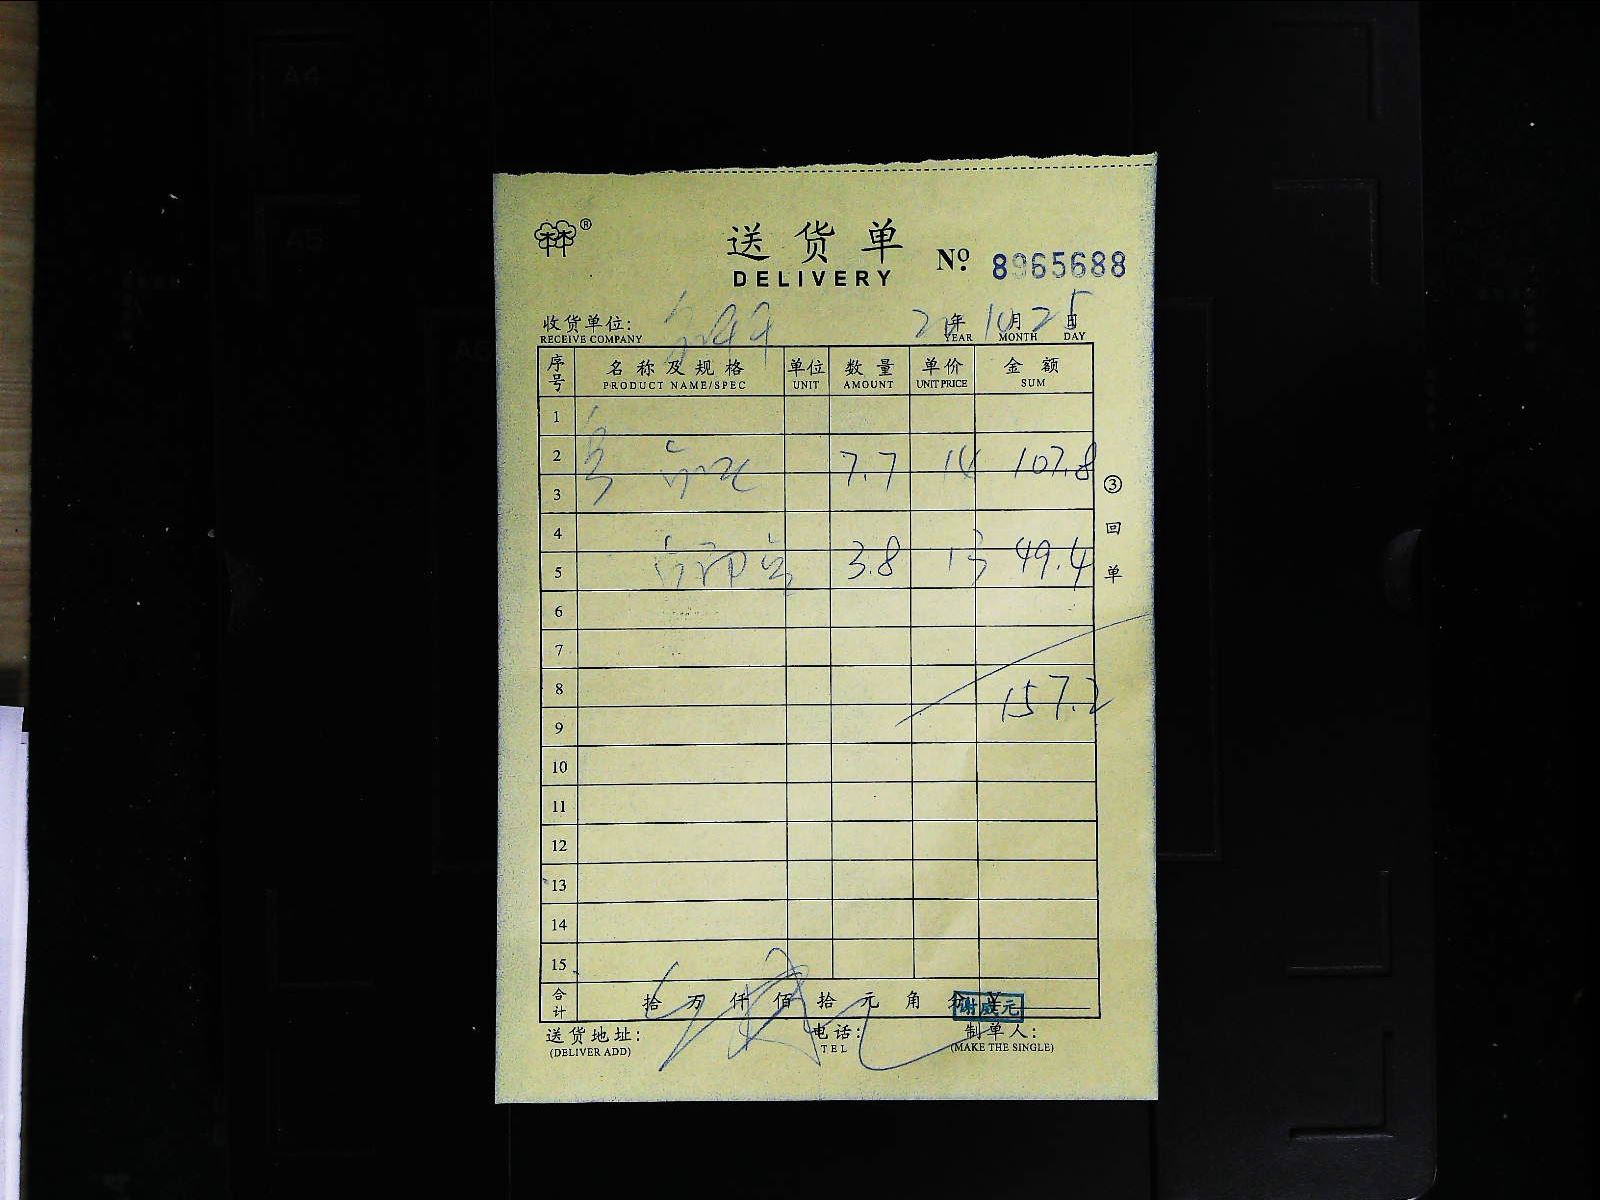 送货单
DELIVERY
№ 8965688
收货单位:
RECEIVE COMPANY
年 月 25日
YEAR MONTH DAY
序号 名称及规格 单位 数量 单价 金额
PRODUCT NAME/SPEC UNIT AMOUNT UNIT PRICE SUM
1
2 7.7 14 107.8
3
4
5 3.8 13 49.4
6
7
8 157.2
9
10
11
12
13
14
15
合计 拾 万 仟 佰 拾 元 角 分
谢威元
送货地址: 电话: 制单人:
(DELIVER ADD) TEL (MAKE THE SINGLE)
③回单
A4
A5